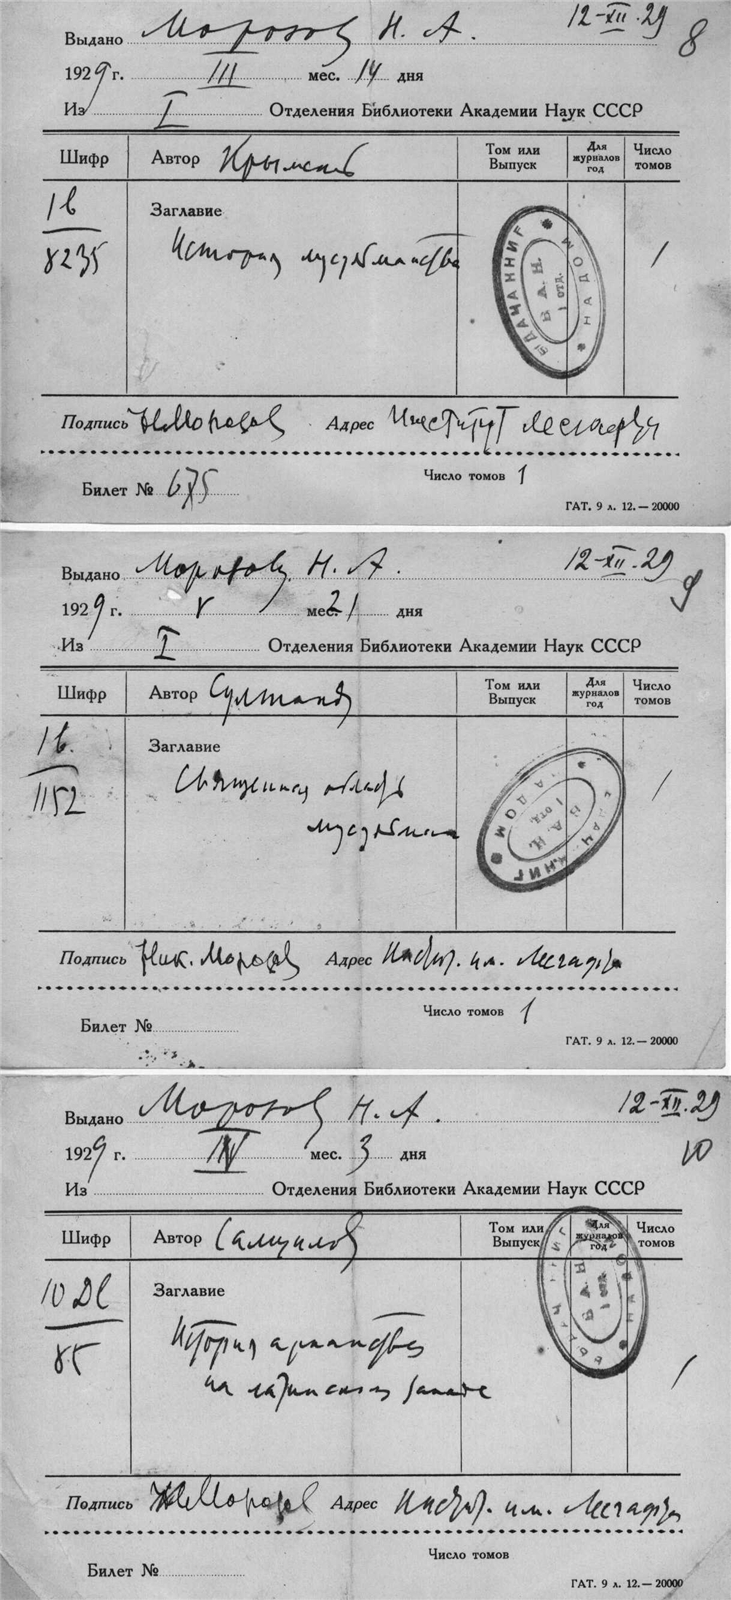 Выдано Морозов Н. А. 12-XII.29 8
1929 г. III мес. 14 дня
Из I Отделения Библиотеки Академии Наук СССР
Шифр Автор Крымский Том или Выпуск Для журналов год Число томов
1в
8235
Заглавие
История мусульманства
1
ВЫДАЧА КНИГ НА ДОМ
Б. А. Н.
1 отд.
Подпись Н Морозов Адрес Институт Лесгафта
Число томов 1
Билет № 675
ГАТ. 9 л. 12.—20000
Выдано Морозову Н. А. 12-XII.29 9
1929 г. V мес. 21 дня
Из I Отделения Библиотеки Академии Наук СССР
Шифр Автор Султанов Том или Выпуск Для журналов год Число томов
1в.
1152
Заглавие
Священная область
мусульман
1
ВЫДАЧА КНИГ НА ДОМ
Б. А. Н.
1 отд.
Подпись Ник. Морозов Адрес Инстит. им. Лесгафта
Число томов 1
Билет №
ГАТ. 9 л. 12.—20000
Выдано Морозов Н. А. 12-XII.29 10
1929 г. IV мес. 3 дня
Из Отделения Библиотеки Академии Наук СССР
Шифр Автор Самуилов Том или Выпуск Для журналов год Число томов
85
Заглавие
История арианства
на латинском западе
1
ВЫДАЧА КНИГ НА ДОМ
Б. А. Н.
1 отд.
Подпись Н Морозов Адрес Инстит. им. Лесгафта
Число томов
Билет №
ГАТ. 9 л. 12.—20000